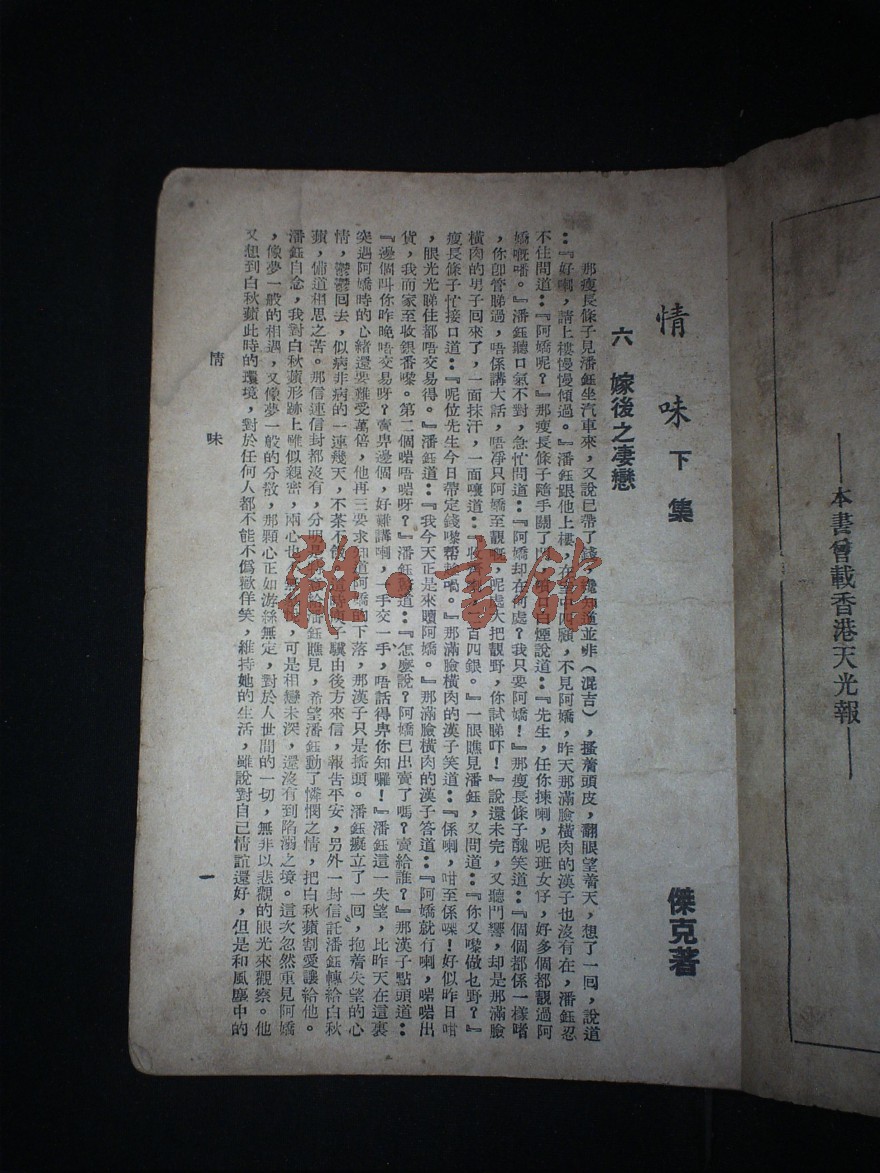 ——本書曾載香港天光報——
情味下集
傑克著
六 嫁後之凄戀
那瘦長條子見潘鈺坐汽車來,又說已帶了錢,知道並非(混吉),搔着頭皮,翻眼望着天,想了一囘,說道
:『好喇,請上樓慢慢傾過。』潘鈺跟他上樓,在中四顧,不見阿嬌,昨天那滿臉橫肉的漢子也沒有在,潘鈺忍
不住問道:『阿嬌呢?』那瘦長條子隨手關了門,口白煙說道:『先生,任你揀喇,呢班女仔,好多個都靚過阿
嬌嘅噃。』潘鈺聽口氣不對,急忙問道:『阿嬌却在何處?我只要阿嬌!』那瘦長條子醜笑道:『個個都係一樣啫
,你卽管睇過,唔係講大話,唔凈只阿嬌至靚嘅,呢處大把靚野,你試睇吓!』說還未完,又聽門響,却是那滿臉
橫肉的男子囘來了,一面抹汗,一面嚷道:『收百四銀。』一眼瞧見潘鈺,又問道:『你又嚟做乜野?』
瘦長條子忙接口道:『呢位先生今日帶定錢嚟帮喎。』那滿臉橫肉的漢子笑道:『係喇,咁至係㗎!好似昨日咁
,眼光光睇住都唔交易得。』潘鈺道:『我今天正是來贖阿嬌。』那滿臉橫肉的漢子答道:『阿嬌就冇喇,啱啱出
貨,我而家至收銀番嚟。第二個啱唔啱呀?』潘鈺道:『怎麽說?阿嬌已出賣了嗎?賣給誰?』那漢子點頭道:
『邊個叫你昨晚唔交易呀?賣畀邊個,好難講喇,一手交一手,唔話得畀你知囉!』潘鈺這一失望,比昨天在這裏
突遇阿嬌時的心緒還要難受萬倍,他再三要求知道阿嬌的下落,那漢子只是搖頭。潘鈺癡立了一囘,抱着失望的心
情,鬱鬱囘去,似病非病的一連幾天,不茶不飯,這時子驥由後方來信,報告平安,另外一封信託潘鈺轉給白秋
蘋,備道相思之苦。那信連信封都沒有,分明是給潘鈺瞧見,希望潘鈺動了憐憫之情,把白秋蘋割愛讓給他。
潘鈺自念,我對白秋蘋形跡上雖似親密,兩心也,可是相戀未深,還沒有到陷溺之境。這次忽然重見阿嬌
,像夢一般的相遇,又像夢一般的分散,那顆心正如游絲無定,對於人世間的一切,無非以悲觀的眼光來觀察。他
又想到白秋蘋此時的環境,對於任何人都不能不僞歡佯笑,維持她的生活,雖說對自己情誼還好,但是和風塵中的
情味
一
雜·書館